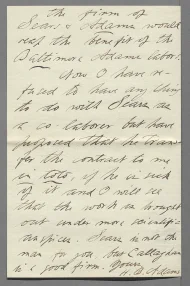 the firm of
Sears & Adams would
reap the benefit of the
Baltimore Adams labor.
Now I have re-
fused to have any thing
to do with Sears as
a co-laborer but have
proposed that he trans-
fer the contract to me
in toto, if he is sick
of it and I will see
that the work is brought
out under more scientific
auspices. Sears is not the
man for you but Callaghan
is a good firm. Yours
H. B. Adams